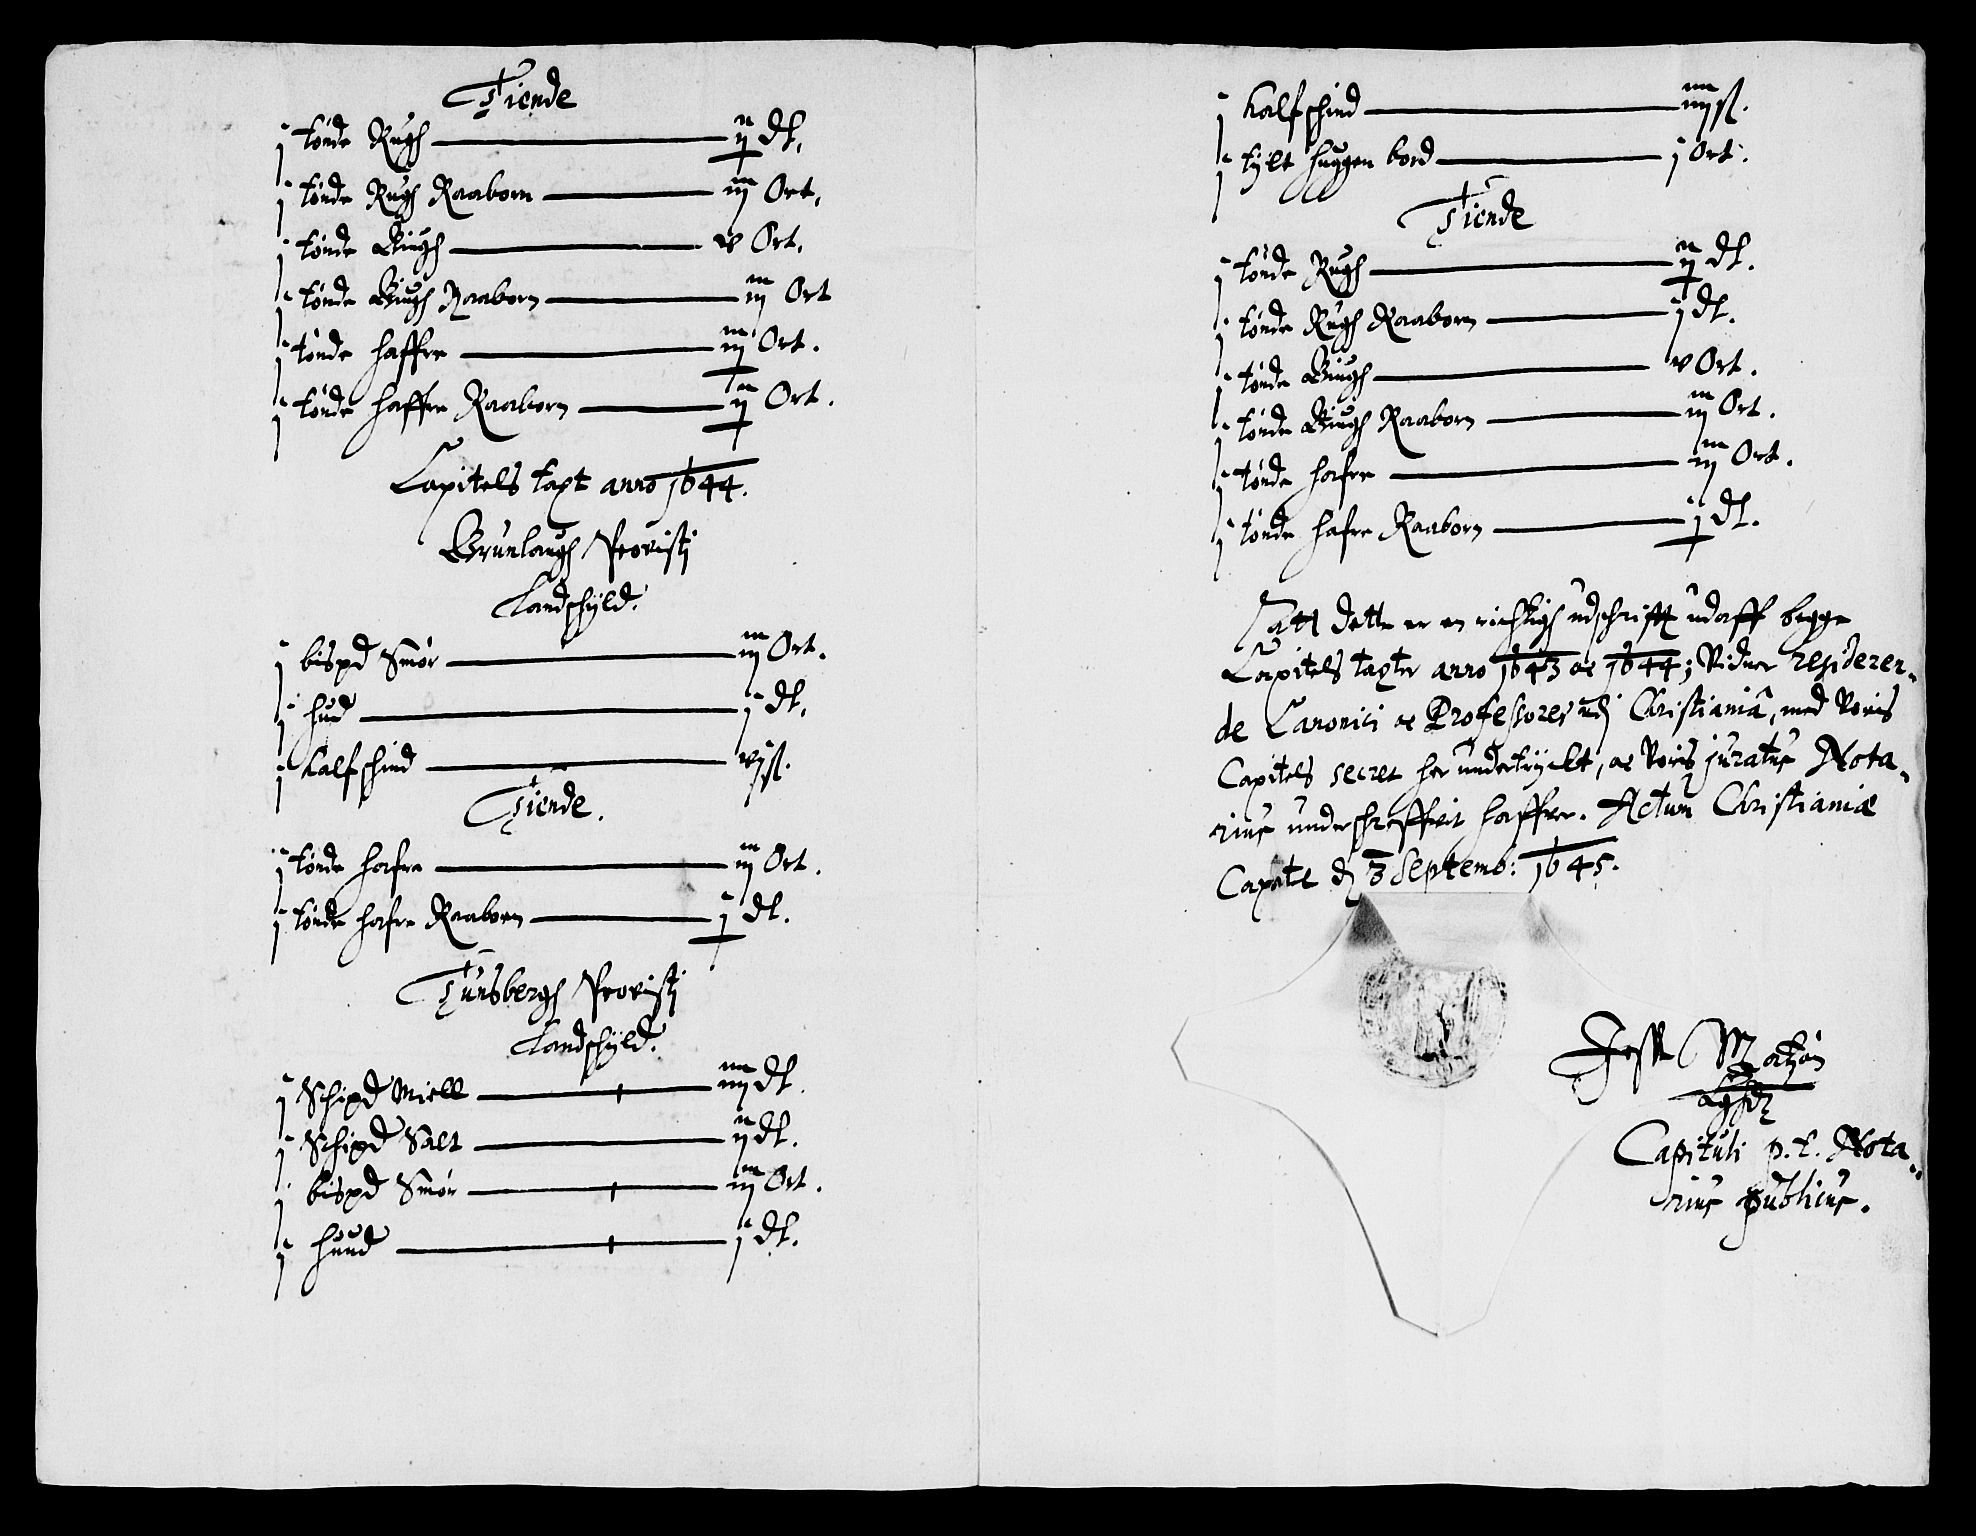 Tiende
j tønde Rugh — ij dl.
j tønde Rugh Raaborn — iij Ort.
j tønde Biugh — v Ort.
j tønde Biugh Raaborn — iij Ort
j tønde haffre — iij Ort.
j tønde haffre Raaborn — ij Ort.
Capitels taxt anno 1644.
Brunlaugh Provisti
Landschyld.
j bispd Smør — iij Ort.
j hud — j dl.
j Kalfschind — vj ß.
Tiende.
j tønde hafre — iij Ort.
j tønde hafre Raaborn — j dl.
Tunsbergh Provisti
Landschyld.
j Schipd Miell — iiij dl.
j Schipd Salt — ij dl.
j bispd Smør — iij Ort.
j huud — j dl.
j Kalfschind — iiij ß.
j tylt huggen bord — j Ort.
Tiende
j tønde Rugh — ij dl.
j tønde Rugh Raaborn — j dl.
j tønde Biugh — v Ort.
j tønde Biugh Raaborn — iij Ort.
j tønde hafre — iij Ort.
j tønde hafre Raaborn — j dl.
att dette er en richtigh udschrifft udaff begge
Capitels taxter anno 1643 oc 1644; Vidner resideren-
de Canonici oc Professores udj Christianiâ, med Voris
Capitels secret her undertryckt, oc Voris juratus Nota-
rius underschreffvit haffver. Actum Christianiæ
d 3 Septemb: 1645.
Jesp Matzøn
Capituli p.t. Nota-
rius publicus.